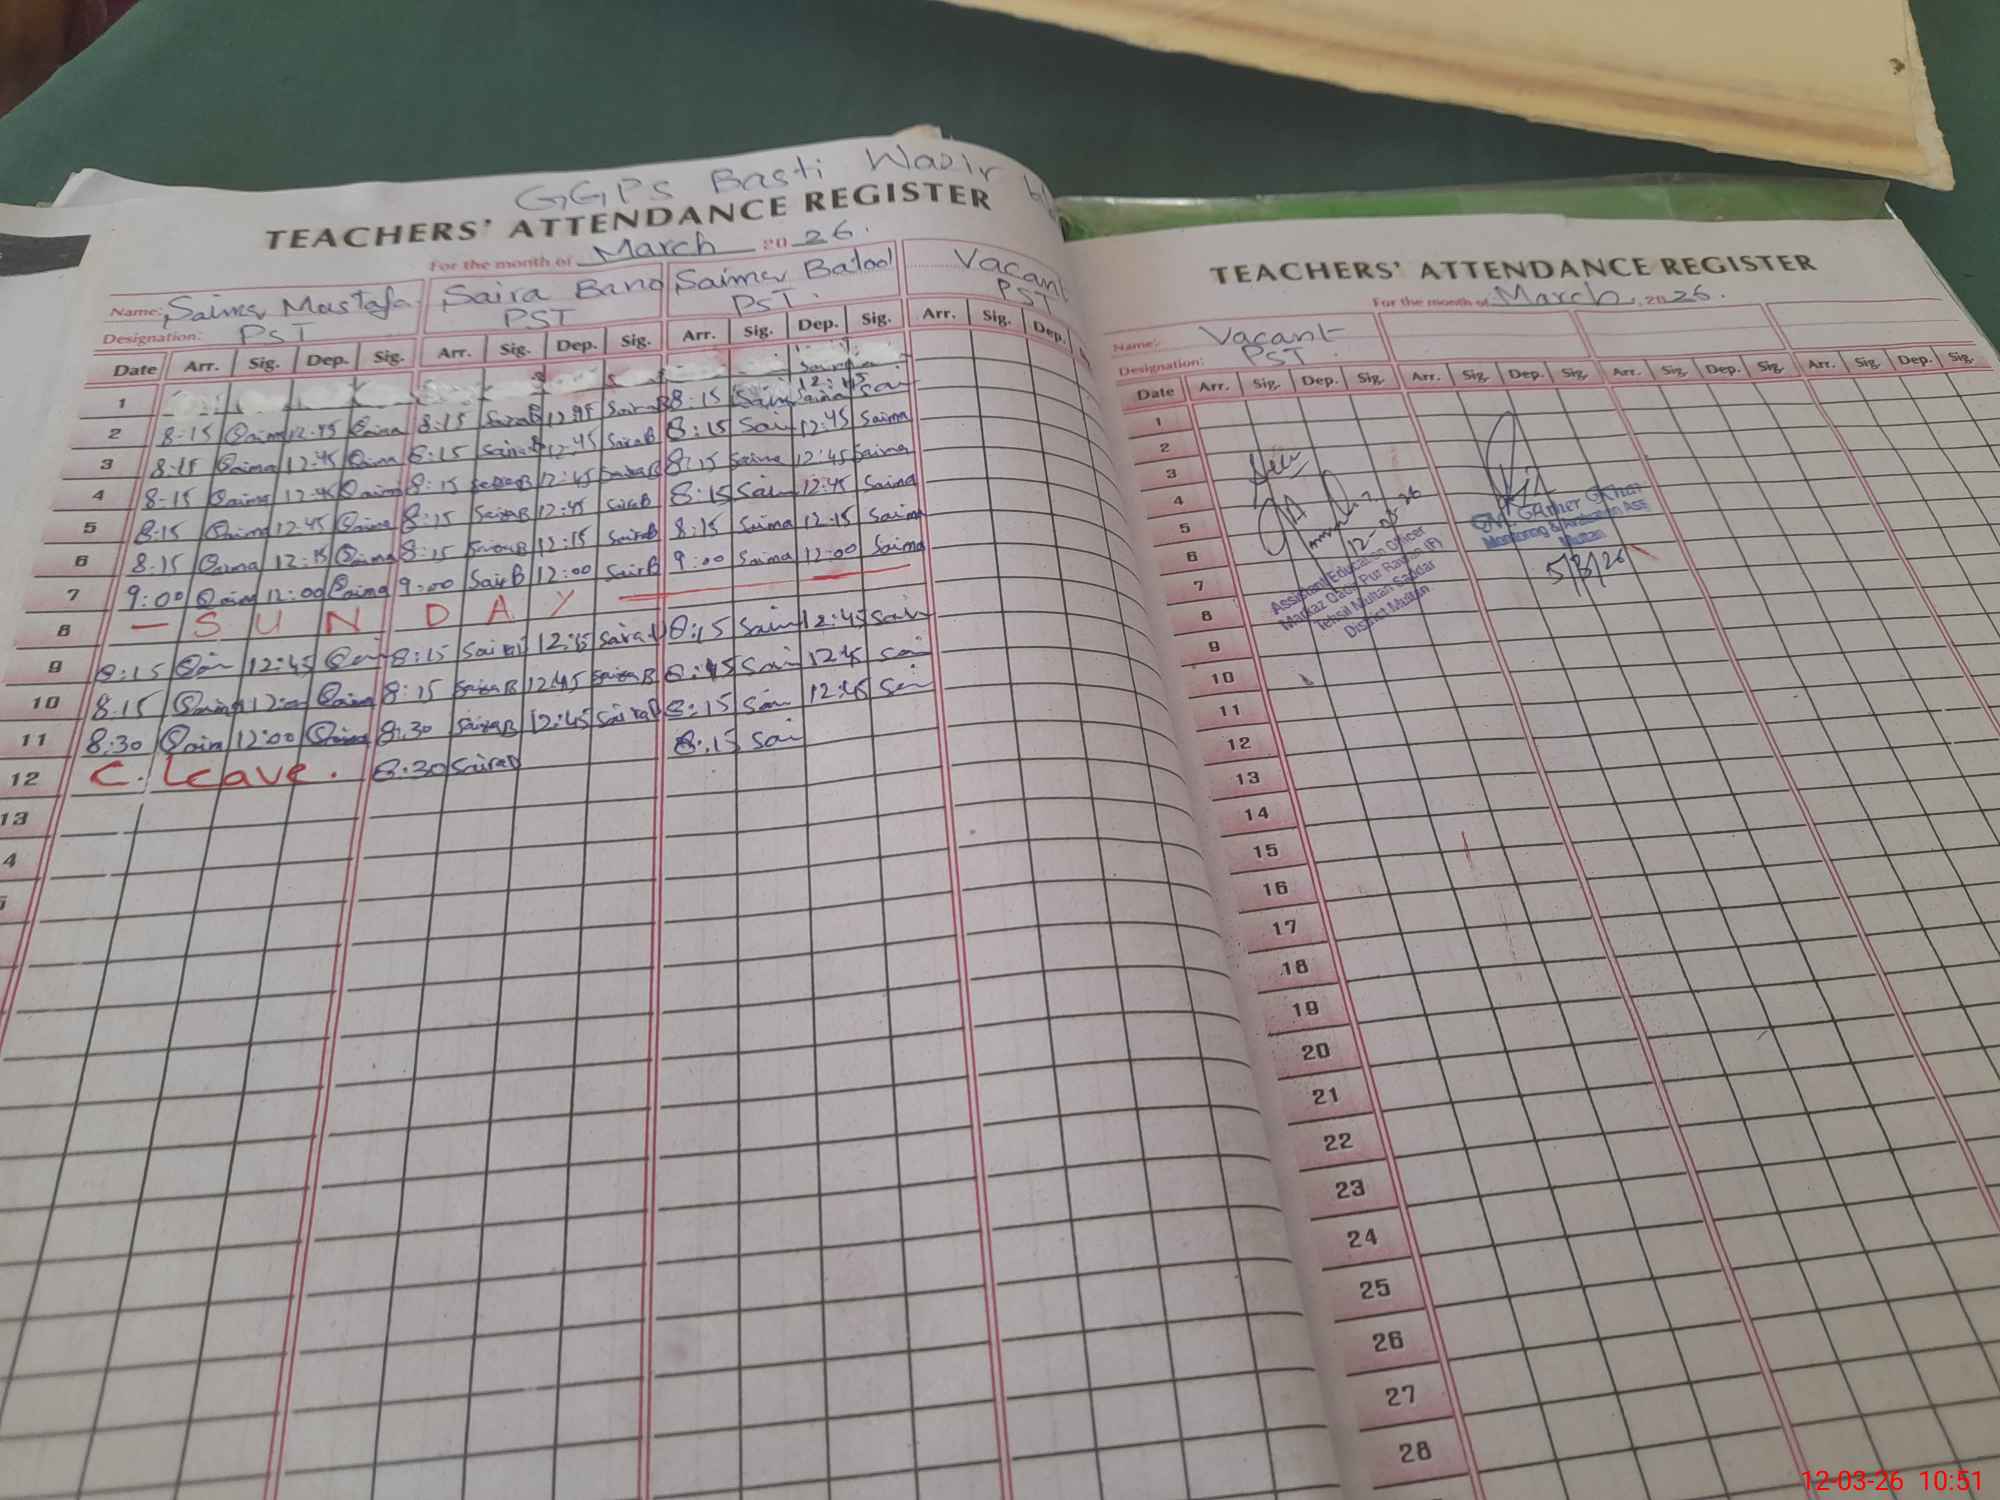 GGPS Basti Wazir
TEACHERS' ATTENDANCE REGISTER
For the month of March 2026.
Name: Saima Mustafa Saira Bano Saima Batool Vacant
Designation: PST PST PST. PST
Date Arr. Sig. Dep. Sig. Arr. Sig. Dep. Sig. Arr. Sig. Dep. Sig. Arr. Sig. Dep.
1
2 8:15 Saima 12:45 Saima 8:15 SairaB 12:45 SairaB 8:15 12:45
3 8:15 Saima 12:45 Saima 8:15 SairaB 12:45 SairaB 8:15 Sai 12:45 Saima
4 8-15 Saima 12:45 Saima 8:15 SairaB 12:45 SairaB 8:15 Saima 12:45 Saima
5 8:15 Saima 12:45 Saima 8:15 SairaB 12:45 SairaB 8:15 Sai 12:45 Saima
6 8:15 Saima 12:15 Saima 8:15 SairaB 12:15 SairaB 8:15 Saima 12:15 Saima
7 9:00 Saima 12:00 Saima 9:00 SairB 12:00 SairB 9:00 Saima 12:00 Saima
8 — S U N D A Y
9 8:15 Sai 12:45 Sai 8:15 Saira 12:45 Saira 8:15 Sai 12:45 Sai
10 8:15 Saima 12:00 Saima 8:15 SairaB 12:45 SairaB 8:15 Sai 12:45 Sai
11 8:30 Saim 12:00 Saima 8:30 SairaB 12:45 SairaB 8:15 Sai 12:45 Sai
12 C. Leave. 8:30 SairaB 8:15 Sai
13
4
TEACHERS' ATTENDANCE REGISTER
For the month of March, 2026.
Name: Vacant
Designation: PST.
Date Arr. Sig. Dep. Sig. Arr. Sig. Dep. Sig. Arr. Sig. Dep. Sig. Arr. Sig. Dep. Sig.
1
2
3
4
5
6
7
8
9
10
11
12
13
14
15
16
17
18
19
20
21
22
23
24
25
26
27
28
Assistant Education Officer
Markaz Qadir Pur Rawan (F)
Tehsil Multan Saddar
District Multan
Monitoring & Evaluation Ass
Multan
5/3/26
12-03-26 10:51